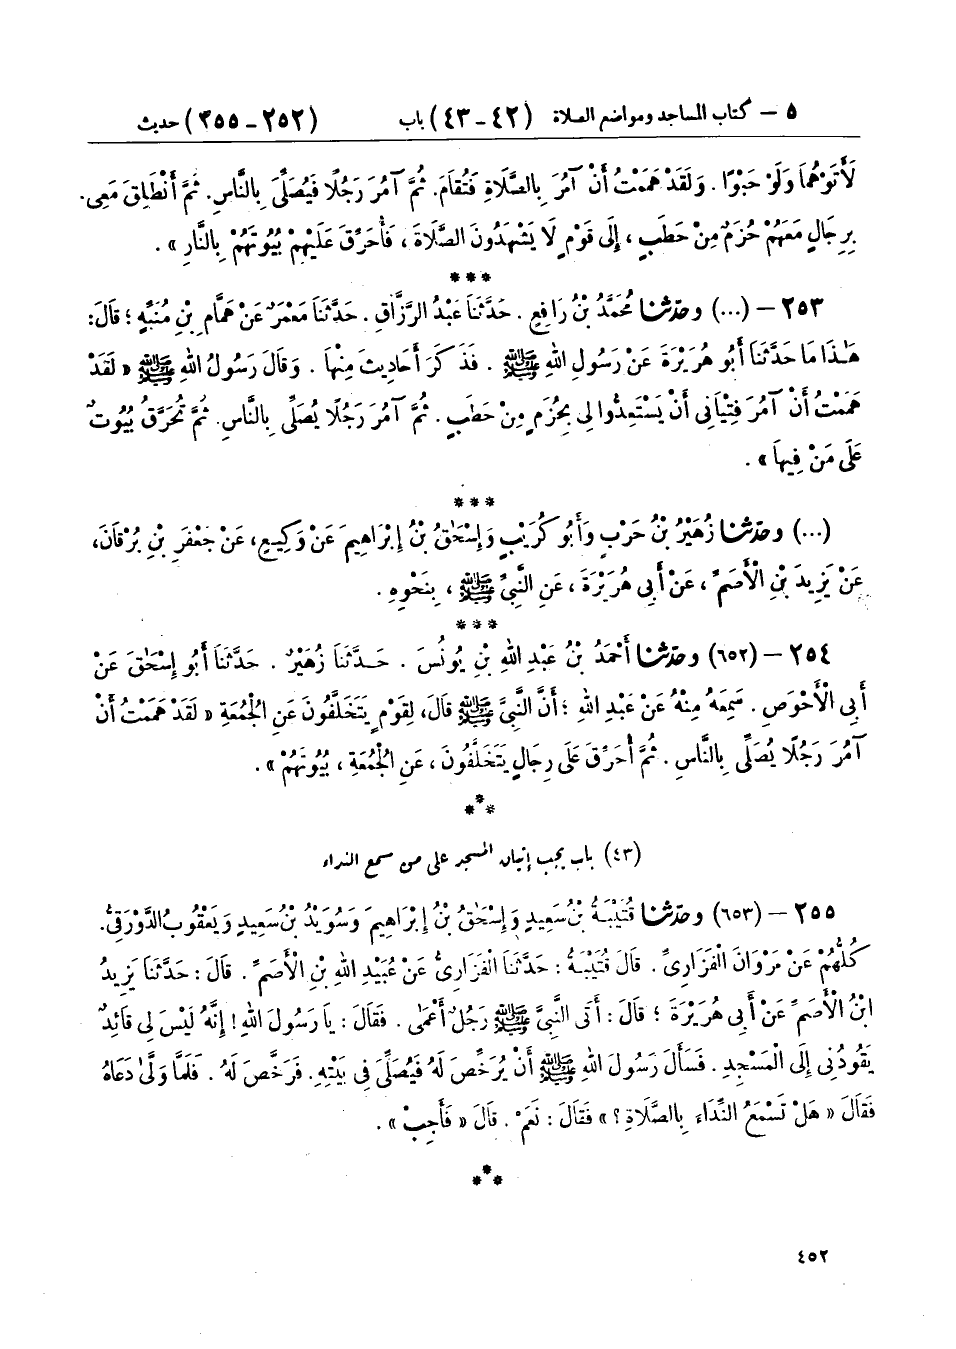 ٥ – كتاب المساجد ومواضع الصلاة (٤٢-٤٣) باب (٢٥٢-٢٥٥) حديث
لَأَتَوْهُمَا وَلَوْ حَبْوًا . وَلَقَدْ هَمَمْتُ أَنْ آمُرَ بِالصَّلَاةِ فَتُقَامَ. ثُمَّ آمُرَ رَجُلًا فَيُصَلِّيَ بِالنَّاسِ. ثُمَّ أَنْطَلِقَ مَعِي.
بِرِجَالٍ مَعَهُمْ حُزَمٌ مِنْ حَطَبٍ ، إِلَى قَوْمٍ لَا يَشْهَدُونَ الصَّلَاةَ ، فَأُحَرِّقَ عَلَيْهِمْ بُيُوتَهُمْ بِالنَّارِ » .
***
٢٥٣ – (...) وحدّثنا مُحَمَّدُ بْنُ رَافِعٍ . حَدَّثَنَا عَبْدُ الرَّزَّاقِ . حَدَّثَنَا مَعْمَرٌ عَنْ هَمَّامِ بْنِ مُنَبِّهٍ ؛ قَالَ:
هَٰذَا مَا حَدَّثَنَا أَبُو هُرَيْرَةَ عَنْ رَسُولِ اللهِ ﷺ . فَذَكَرَ أَحَادِيثَ مِنْهَا . وَقَالَ رَسُولُ اللهِ ﷺ « لَقَدْ
هَمَمْتُ أَنْ آمُرَ فِتْيَانِي أَنْ يَسْتَعِدُّوا لِي بِحُزَمٍ مِنْ حَطَبٍ . ثُمَّ آمُرَ رَجُلًا يُصَلِّي بِالنَّاسِ. ثُمَّ تُحَرَّقُ بُيُوتٌ
عَلَى مَنْ فِيهَا » .
***
(...) وحدّثنا زُهَيْرُ بْنُ حَرْبٍ وَأَبُو كُرَيْبٍ وَإِسْحَٰقُ بْنُ إِبْرَاهِيمَ عَنْ وَكِيعٍ، عَنْ جَعْفَرِ بْنِ بُرْقَانَ،
عَنْ يَزِيدَ بْنِ الْأَصَمِّ ، عَنْ أَبِي هُرَيْرَةَ ، عَنِ النَّبِيِّ ﷺ ، بِنَحْوِهِ .
***
٢٥٤ – (٦٥٢) وحدّثنا أَحْمَدُ بْنُ عَبْدِ اللهِ بْنِ يُونُسَ . حَدَّثَنَا زُهَيْرٌ . حَدَّثَنَا أَبُو إِسْحَٰقَ عَنْ
أَبِي الْأَحْوَصِ . سَمِعَهُ مِنْهُ عَنْ عَبْدِ اللهِ ؛ أَنَّ النَّبِيَّ ﷺ قَالَ، لِقَوْمٍ يَتَخَلَّفُونَ عَنِ الْجُمُعَةِ « لَقَدْ هَمَمْتُ أَنْ
آمُرَ رَجُلًا يُصَلِّي بِالنَّاسِ . ثُمَّ أُحَرِّقَ عَلَى رِجَالٍ يَتَخَلَّفُونَ ، عَنِ الْجُمُعَةِ ، بُيُوتَهُمْ » .
***
(٤٣) باب يجب إتيان المسجد على من سمع النداء
٢٥٥ – (٦٥٣) وحدّثنا قُتَيْبَةُ بْنُ سَعِيدٍ وَإِسْحَٰقُ بْنُ إِبْرَاهِيمَ وَسُوَيْدُ بْنُ سَعِيدٍ وَيَعْقُوبُ الدَّوْرَقِيُّ.
كُلُّهُمْ عَنْ مَرْوَانَ الْفَزَارِيِّ . قَالَ قُتَيْبَةُ : حَدَّثَنَا الْفَزَارِيُّ عَنْ عُبَيْدِ اللهِ بْنِ الْأَصَمِّ . قَالَ : حَدَّثَنَا يَزِيدُ
ابْنُ الْأَصَمِّ عَنْ أَبِي هُرَيْرَةَ ؛ قَالَ : أَتَى النَّبِيَّ ﷺ رَجُلٌ أَعْمَى . فَقَالَ : يَا رَسُولَ اللهِ ! إِنَّهُ لَيْسَ لِي قَائِدٌ
يَقُودُنِي إِلَى الْمَسْجِدِ . فَسَأَلَ رَسُولَ اللهِ ﷺ أَنْ يُرَخِّصَ لَهُ فَيُصَلِّيَ فِي بَيْتِهِ. فَرَخَّصَ لَهُ . فَلَمَّا وَلَّى دَعَاهُ
فَقَالَ « هَلْ تَسْمَعُ النِّدَاءَ بِالصَّلَاةِ ؟ » فَقَالَ : نَعَمْ . قَالَ « فَأَجِبْ » .
***
٤٥٢